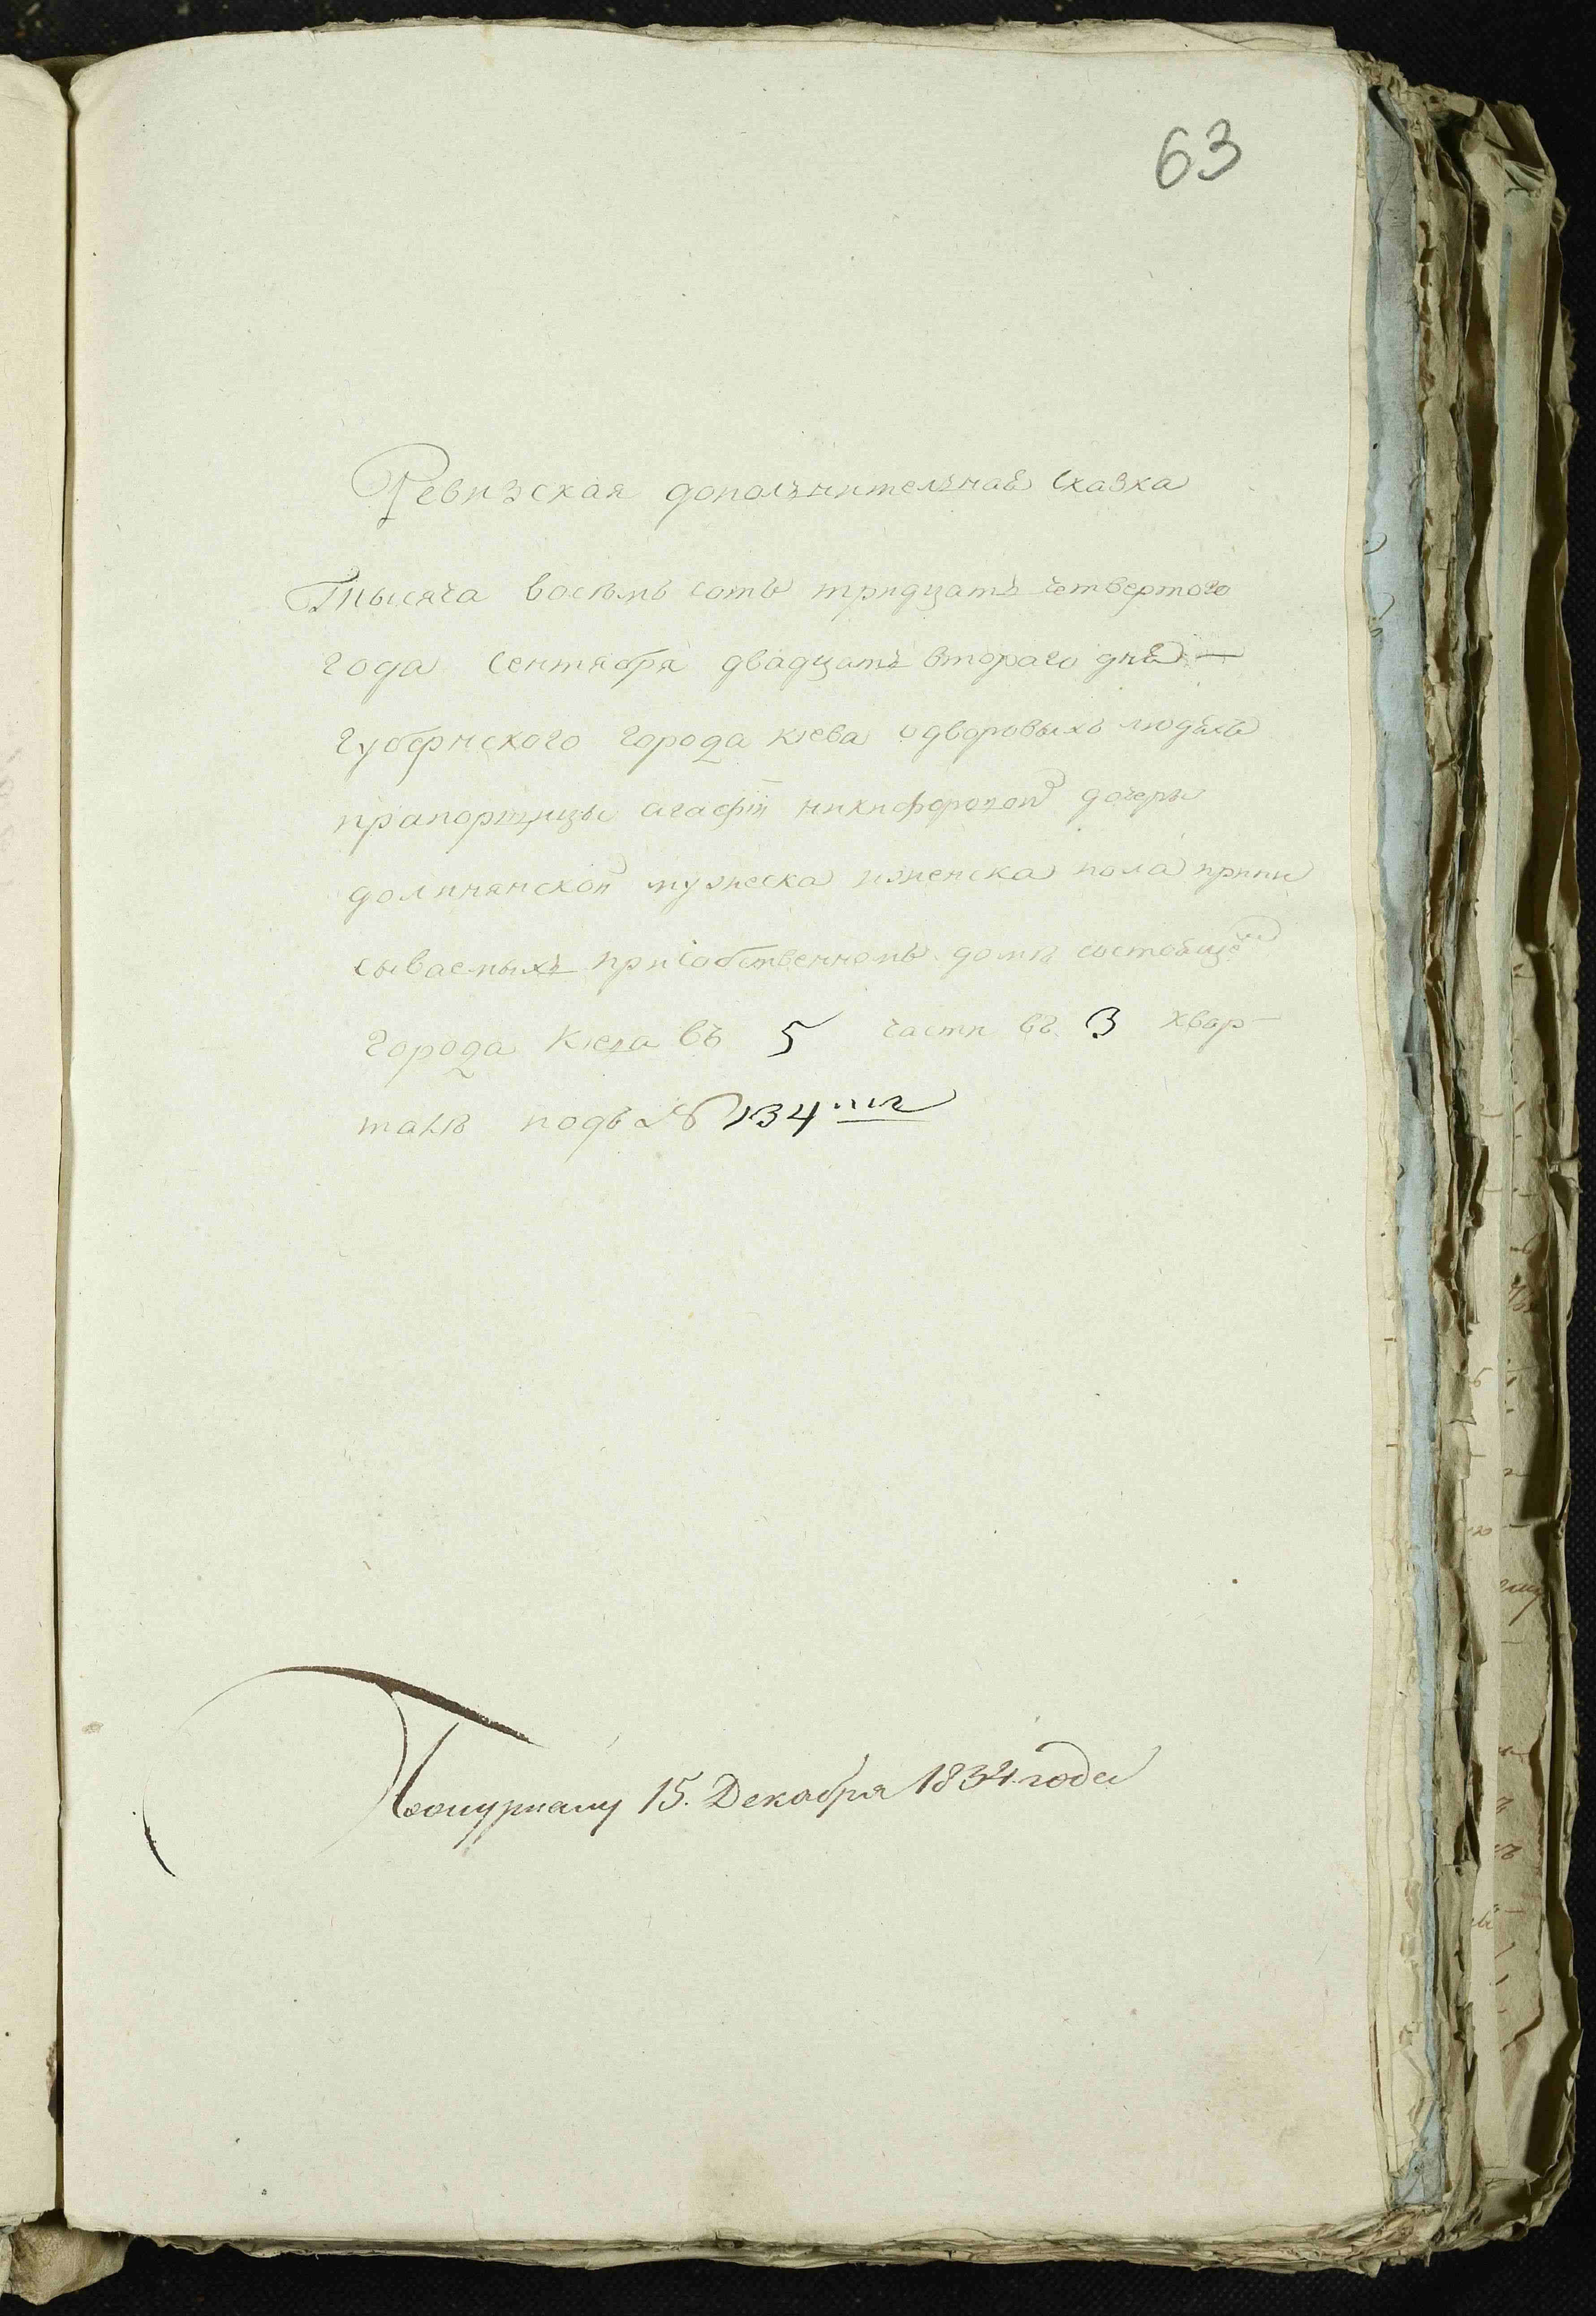 63
Ревизская дополънителъная сказка
Тысяча восемь сотъ тридцатъ четвертого
года сентября двадцатъ второго дня —
губернского города киева одворовыхъ людѣхъ
прапорщицы агафіи никифоровой дочери
долинянской мужеска иженска пола припи
сываемыхъ присобственномъ домѣ состоящемъ
города Киева въ 5 части въ 3 квар-
талѣ подъ № 134мъ
15. Декабря 1834 года